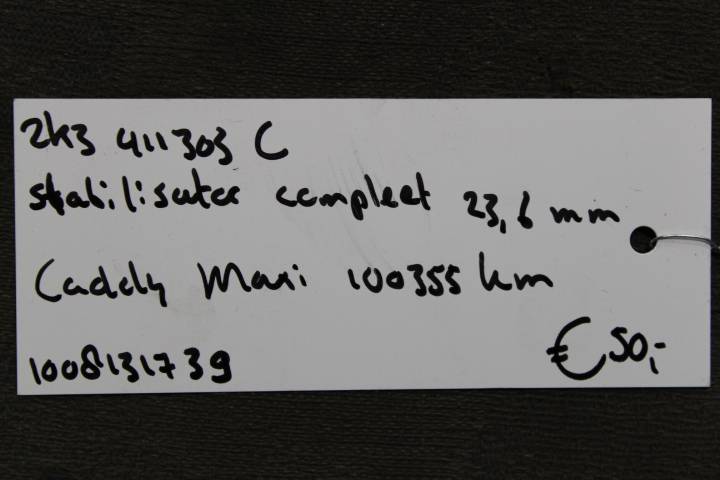 2k3 411303 C
stabilisator compleet 23,6 mm
Caddy Maxi 100355 km
1008131739
€50,-